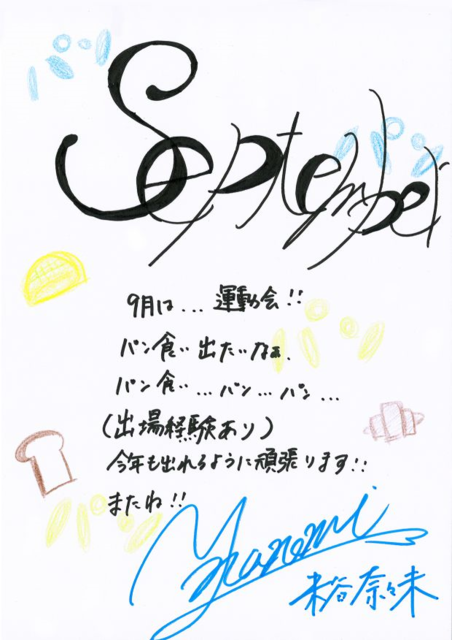 パン
September
パン
9月は... 運動会!!
パン食い出たいなぁ、
パン食い...パン...パン...
(出場経験あり)
今年も出れるように頑張ります!!
またね!!
パン
パン
Nanami
米谷奈々未